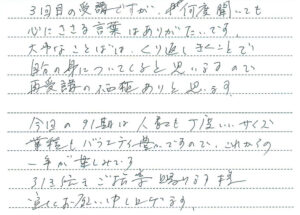 3回目の受講ですが、何度聞いても
心にささる言葉はありがたいです。
大事なことばは、くり返しきくことで
自分の身についてくると思いますので
再受講の価値ありと思います
今回の91期は人数も丁度いいサイズ
業種もバラエティ豊かですので、これからの
一年が楽しみです
ご指導賜ります様
宜しくお願い申し上げます。